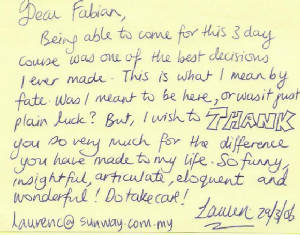 Dear Fabian,
Being able to come for this 3 day
course was one of the best decisions
I ever made. This is what I mean by
fate. Was I meant to be here, or was it just
plain luck? But, I wish to THANK
you so very much for the difference
you have made to my life. So funny,
insightful, articulate, eloquent and
wonderful! Do take care!
Lauren 29/3/06
laurenc@sunway.com.my